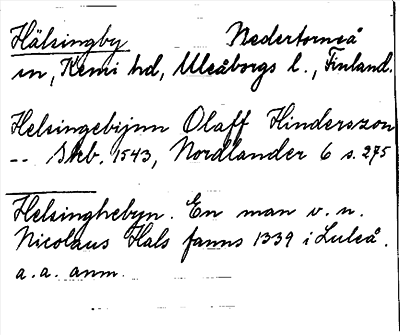 Hälsingby Nedertorneå
sn, Kemi hd, Uleåborgs l., Finland.
Helsingebijnn Olaff Hinderszon
-- Skb. 1543, Nordlander 6 s. 275
Helsinghebyn. En man v. n.
Nicolaus Hals fanns 1339 i Luleå.
a. a. anm.